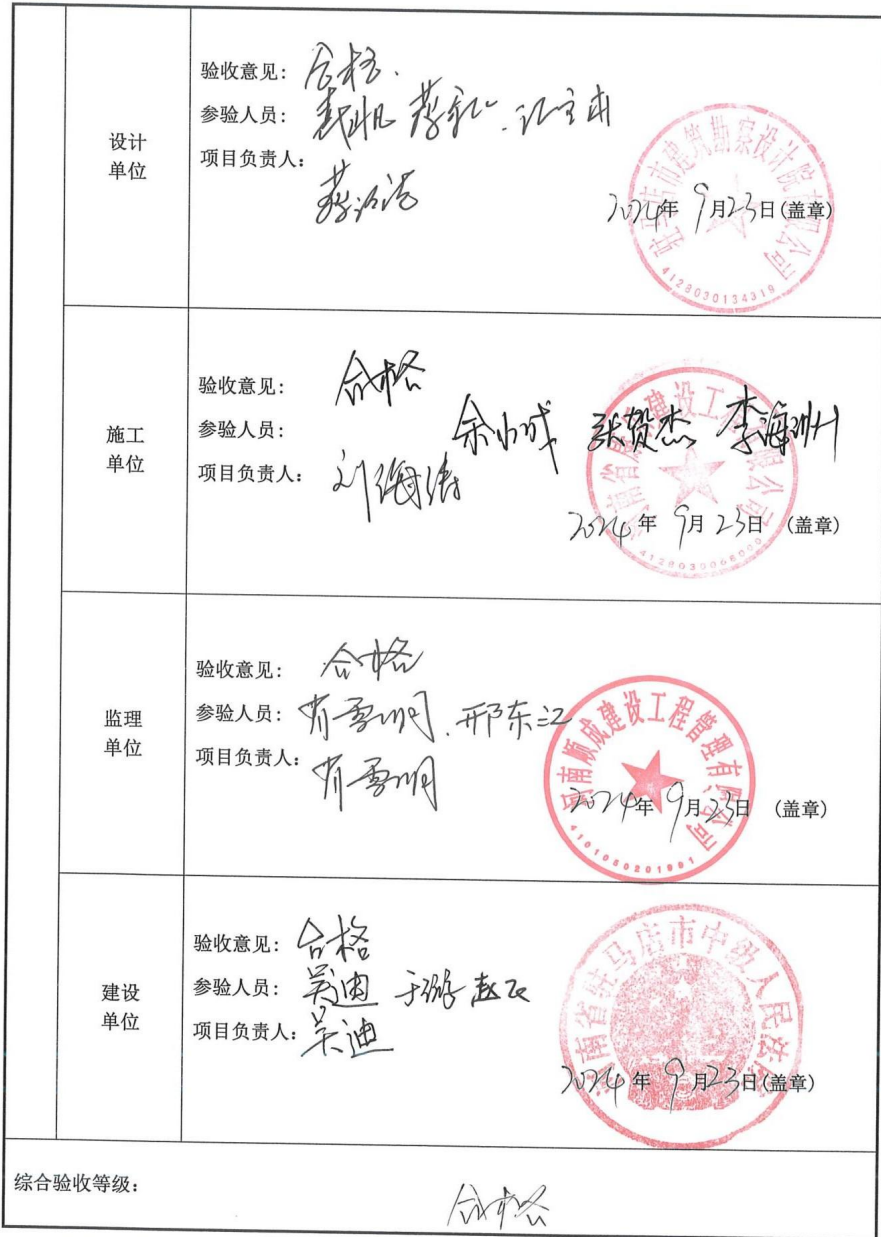 设计
单位
验收意见：合格.
参验人员：
项目负责人：
驻马店市建筑勘察设计院有限公司
2024年 9月23日(盖章)
4128030134319
施工
单位
验收意见：合格
参验人员：余小成 张贺杰 李海洲
项目负责人：刘海涛
建设工程有限公司
2024年 9月23日 (盖章)
4128030066000
监理
单位
验收意见：合格
参验人员：肖雪明、邢东江
项目负责人：肖雪明
河南顺成建设工程管理有限公司
2024年 9月23日 (盖章)
4101060201991
建设
单位
验收意见：合格
参验人员：吴迪 于游 赵飞
项目负责人：吴迪
河南省驻马店市中级人民法院
2024年 9月23日(盖章)
综合验收等级：
合格